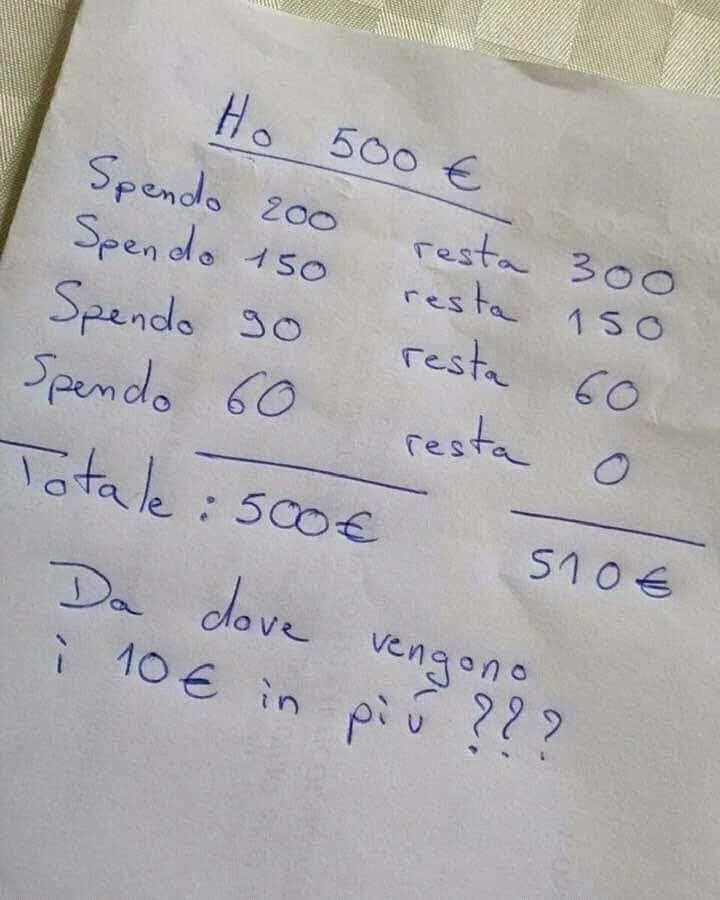 Ho 500 €
Spendo 200 resta 300
Spendo 150 resta 150
Spendo 90 resta 60
Spendo 60 resta 0
Totale : 500€ 510€
Da dove vengono
i 10€ in più ???